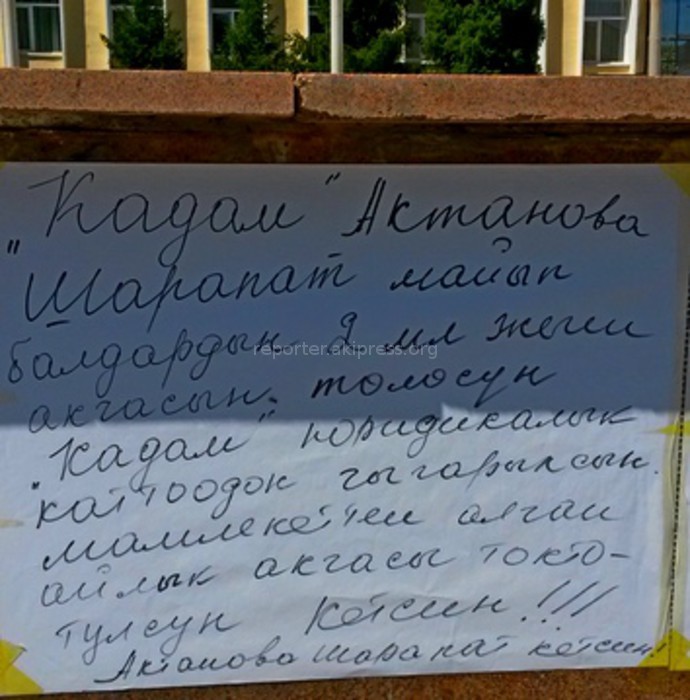 "Кадам" Актанова
Шарапат майып
балдардын 2 мл жеген
акчасын толосун
"Кадам" юридикалык
каттоодон чыгарылсын.
мамлекеттен алган
айлык акчасы токто-
тулсун кетсин!!!
Актанова шарапат кетсин!
reporter.akipress.org